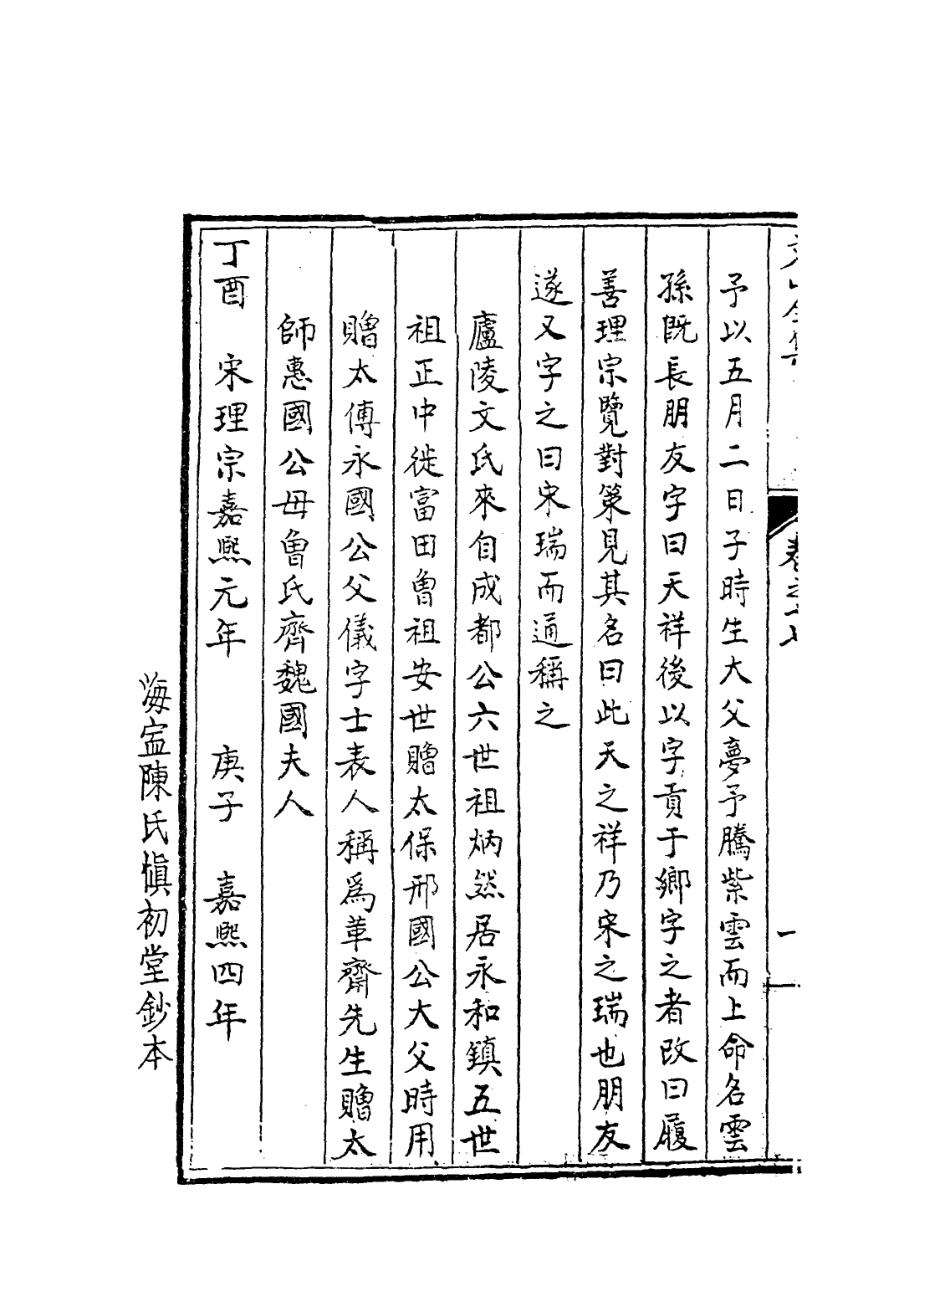 予以五月二日子時生大父夢予騰紫雲而上命名雲
孫既長朋友字曰天祥後以字貢于鄉字之者改曰履
善理宗覽對策見其名曰此天之祥乃宋之瑞也朋友
遂又字之曰宋瑞而通稱之
廬陵文氏來自成都公六世祖炳然居永和鎮五世
祖正中徙富田曾祖安世贈太保邢國公大父時用
贈太傅永國公父儀字士表人稱爲革齋先生贈太
師惠國公母曾氏齊魏國夫人
丁酉 宋理宗嘉熙元年 庚子 嘉熙四年
海寍陳氏慎初堂鈔本